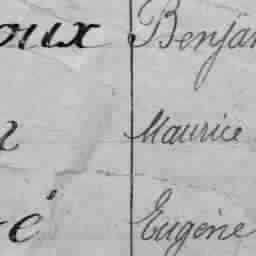 oux Benjam
Maurice
é Eugène